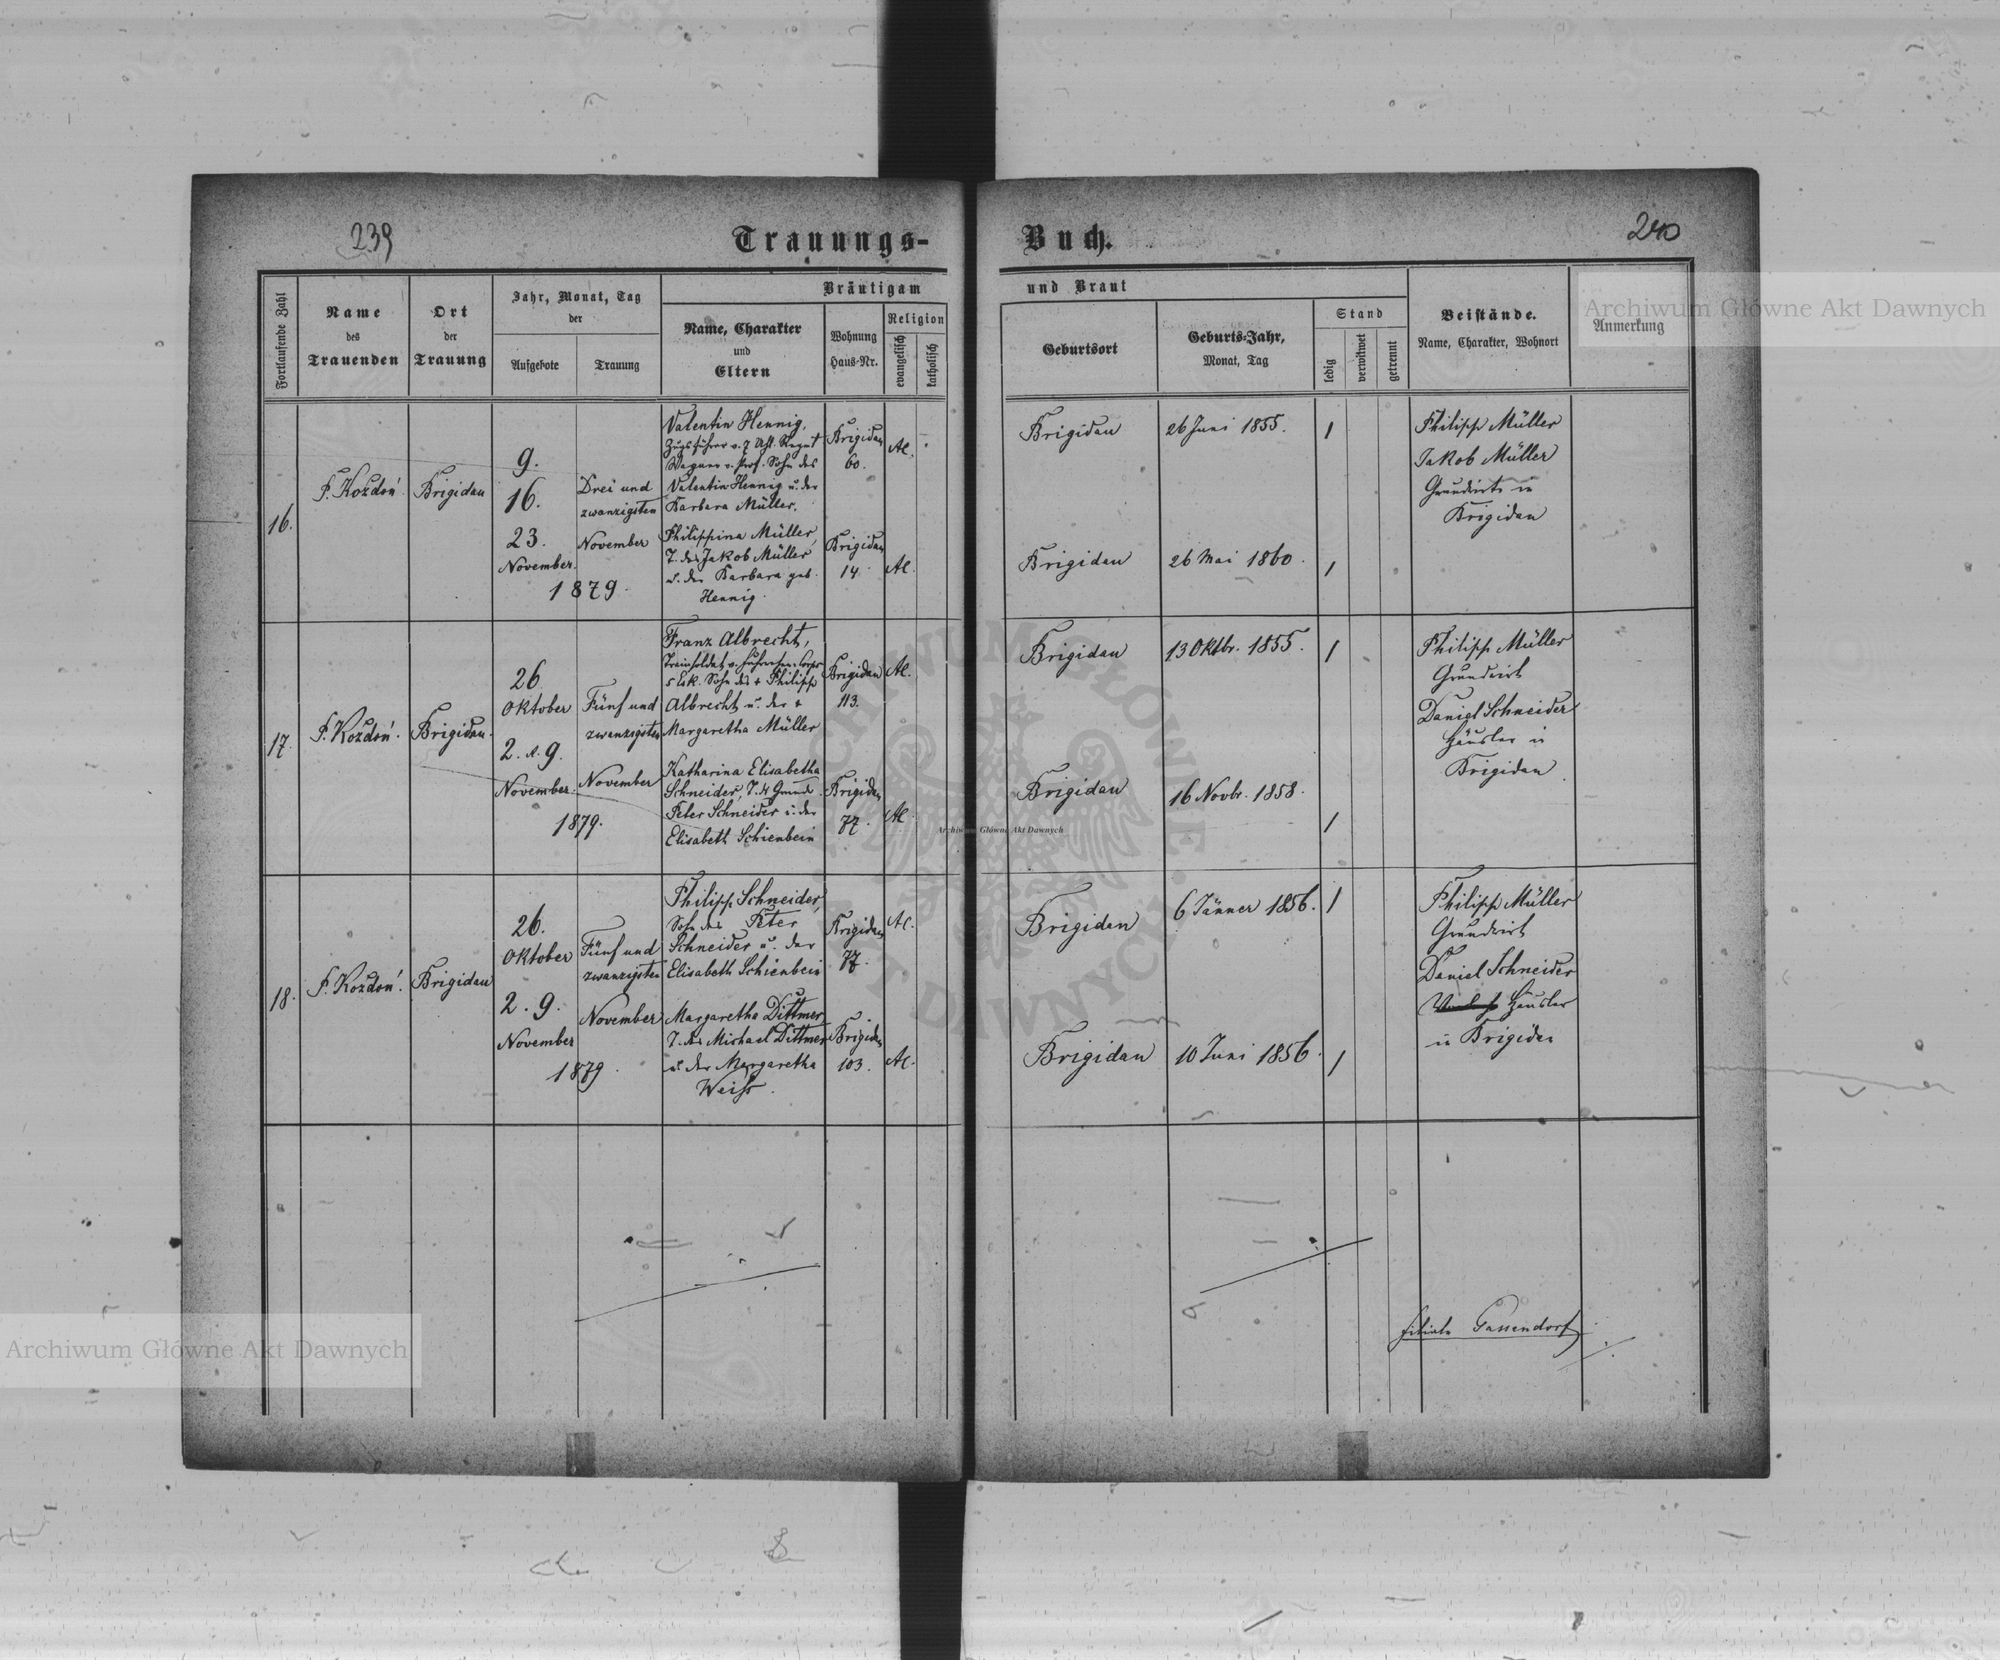 239
Trauungs-
Buch.
240
Fortlaufende Zahl
Name
des
Trauenden
Ort
der
Trauung
Jahr, Monat, Tag
der
Aufgebote
Trauung
Bräutigam
Name, Charakter
und
Eltern
Wohnung
Haus-Nr.
Religion
evangelisch
katholisch
und Braut
Geburtsort
Geburts-Jahr,
Monat, Tag
Stand
ledig
verwitwet
getrennt
Beistände.
Name, Charakter, Wohnort
Anmerkung
16.
F. Kozdoń
Brigidau
9.
16.
23.
November
1879.
Drei und
zwanzigsten
November
Valentin Hennig,
Zugsführer v. 7
Wagner v. Prof. Sohn des
Valentin Hennig u. der
Barbara Müller.
Philippina Müller,
T. des Jakob Müller
u. der Barbara geb.
Hennig.
Brigidau
60.
Brigidau
14
AC.
AC.
Brigidau
26 Juni 1855.
1
Brigidau
26 Mai 1860.
1
Philipp Müller
Jakob Müller
Grundwirte in
Brigidau
17.
F. Kozdoń.
Brigidau.
26
Oktober
2. u. 9.
November.
1879.
Fünf und
zwanzigsten
November
Franz Albrecht,
5 Esk. Sohn des + Philipp
Albrecht u. der +
Margaretha Müller
Katharina Elisabetha
Schneider, T. d.
Peter Schneider u. der
Elisabeth Schienbein
Brigidau
113.
Brigidau
77.
AC.
AC.
Brigidau
13 Oktbr. 1855.
1
Brigidau
16 Novbr. 1858.
1
Philipp Müller
Grundwirt
Daniel Schneider
Häusler in
Brigidau
18.
F. Kozdoń.
Brigidau
26.
Oktober
2. 9.
November
1879.
Fünf und
zwanzigsten
November
Philipp Schneider,
Sohn des Peter
Schneider u. der
Elisabeth Schienbein
Margaretha Dittmer
T. des Michael Dittmer
u. der Margaretha
Weiss.
Brigidau
77.
Brigidau
103.
AC.
AC.
Brigidau
6 Jänner 1856.
1
Brigidau
10 Juni 1856.
1
Philipp Müller
Grundwirt
Daniel Schneider
Häusler
in Brigidau
Filiale Gassendorf
Archiwum Główne Akt Dawnych
Archiwum Główne Akt Dawnych
Archiwum Główne Akt Dawnych
ARCHIWUM GŁÓWNE AKT DAWNYCH